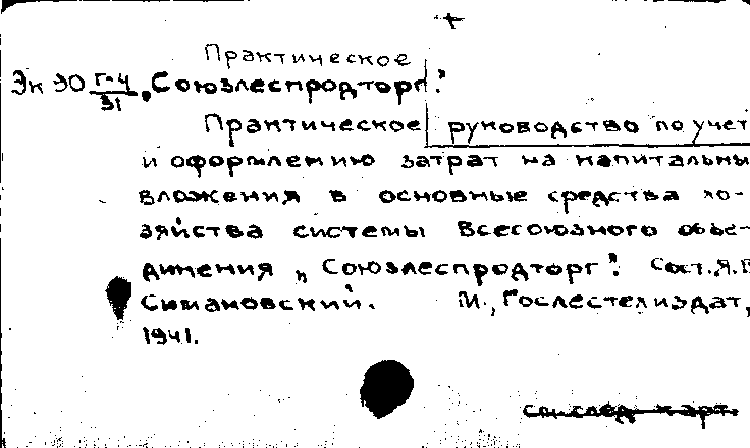 Практическое
Эк 90 Г-4/31 „Союзлеспродторг".
Практическое руководство по учет
и оформлению затрат на капитальны
вложения в основные средства хо-
зяйства системы Всесоюзного объе-
динения „Союзлеспродторг". Сост. Я.
Симановский. М., Гослестехиздат,
1941.
см. след карт.